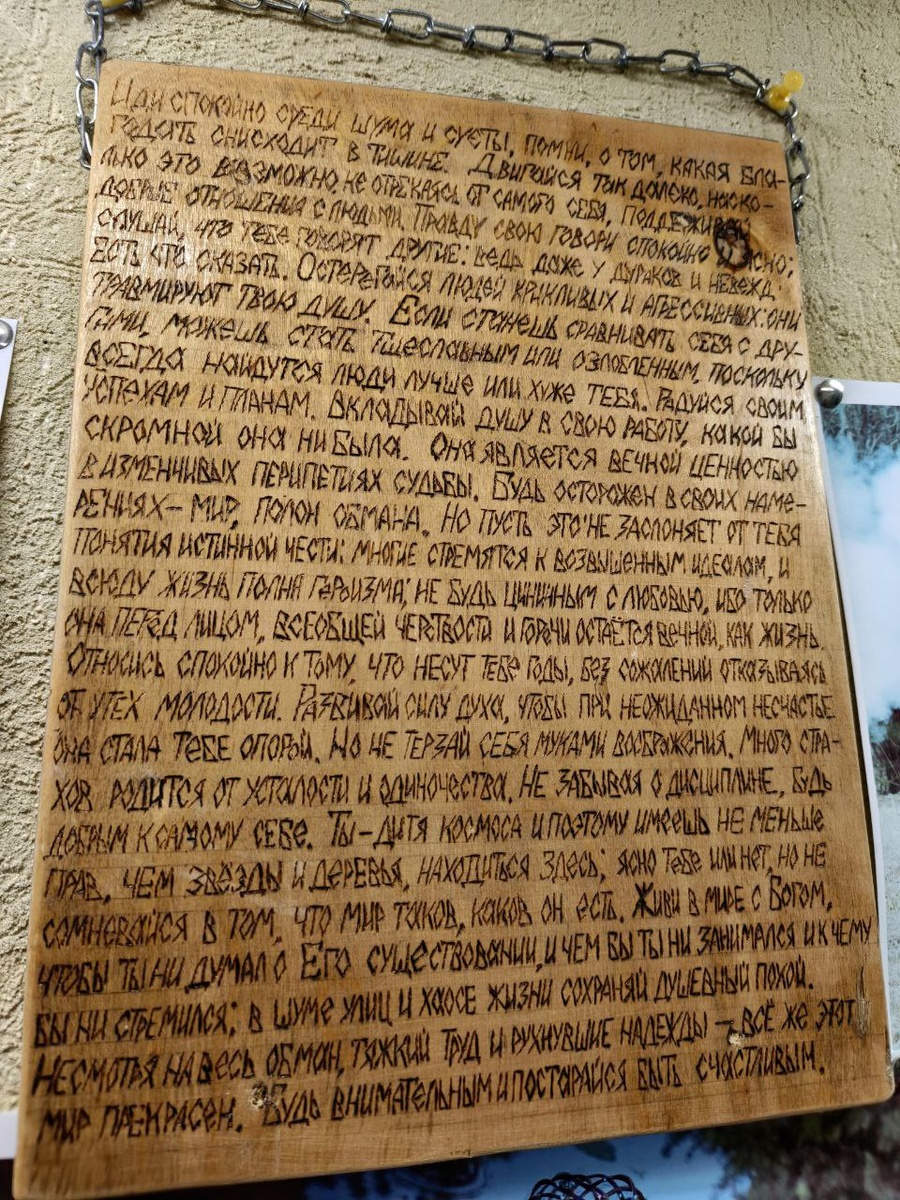 Иди спокойно среди шума и суеты, помни, о том, какая бла-
годать снисходит в тишине. Двигайся так далеко, наско-
лько это возможно, не отрекаясь от самого себя, поддеживай
добрые отношения с людьми. Правду свою говори спокойно и ясно;
слушай, что тебе говорят другие: ведь даже у дураков и невежд
есть что сказать. Остерегайся людей крикливых и агрессивных: они
травмируют твою душу. Если станешь сравнивать себя с дру-
гими, можешь стать тщеславным или озлобленным, поскольку
всегда найдутся люди лучше или хуже тебя. Радуйся своим
успехам и планам. Вкладывай душу в свою работу, какой бы
скромной она ни была. Она является вечной ценностью
в изменчивых перипетиях судьбы. Будь осторожен в своих наме-
рениях — мир, полон обмана. Но пусть это не заслоняет от тебя
понятия истинной чести: многие стремятся к возвышенным идеалам, и
всюду жизнь полна героизма; не будь циничным с любовью, ибо только
она перед лицом, всеобщей черствости и горечи остаётся вечной, как жизнь.
Относись спокойно к тому, что несут тебе годы, без сожалений отказываясь
от утех молодости. Развивай силу духа, чтобы при неожиданном несчастье
она стала тебе опорой. Но не терзай себя муками воображения. Много стра-
хов родится от усталости и одиночества. Не забывая о дисциплине, будь
добрым к самому себе. Ты — дитя космоса и поэтому имеешь не меньше
прав, чем звёзды и деревья, находиться здесь; ясно тебе или нет, но не
сомневайся в том, что мир таков, каков он есть. Живи в мире с Богом,
чтобы ты ни думал о Его существовании, и чем бы ты ни занимался и к чему
бы ни стремился; в шуме улиц и хаосе жизни сохраняй душевный покой.
Несмотря на весь обман, тяжкий труд и рухнувшие надежды — всё же этот
мир прекрасен. Будь внимательным и постарайся быть счастливым.